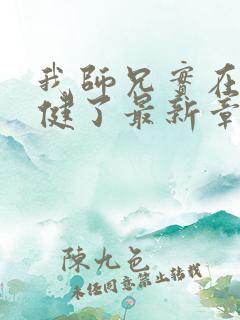 我師兄實在
健了最新章
陳九色
未經同意禁止轉載